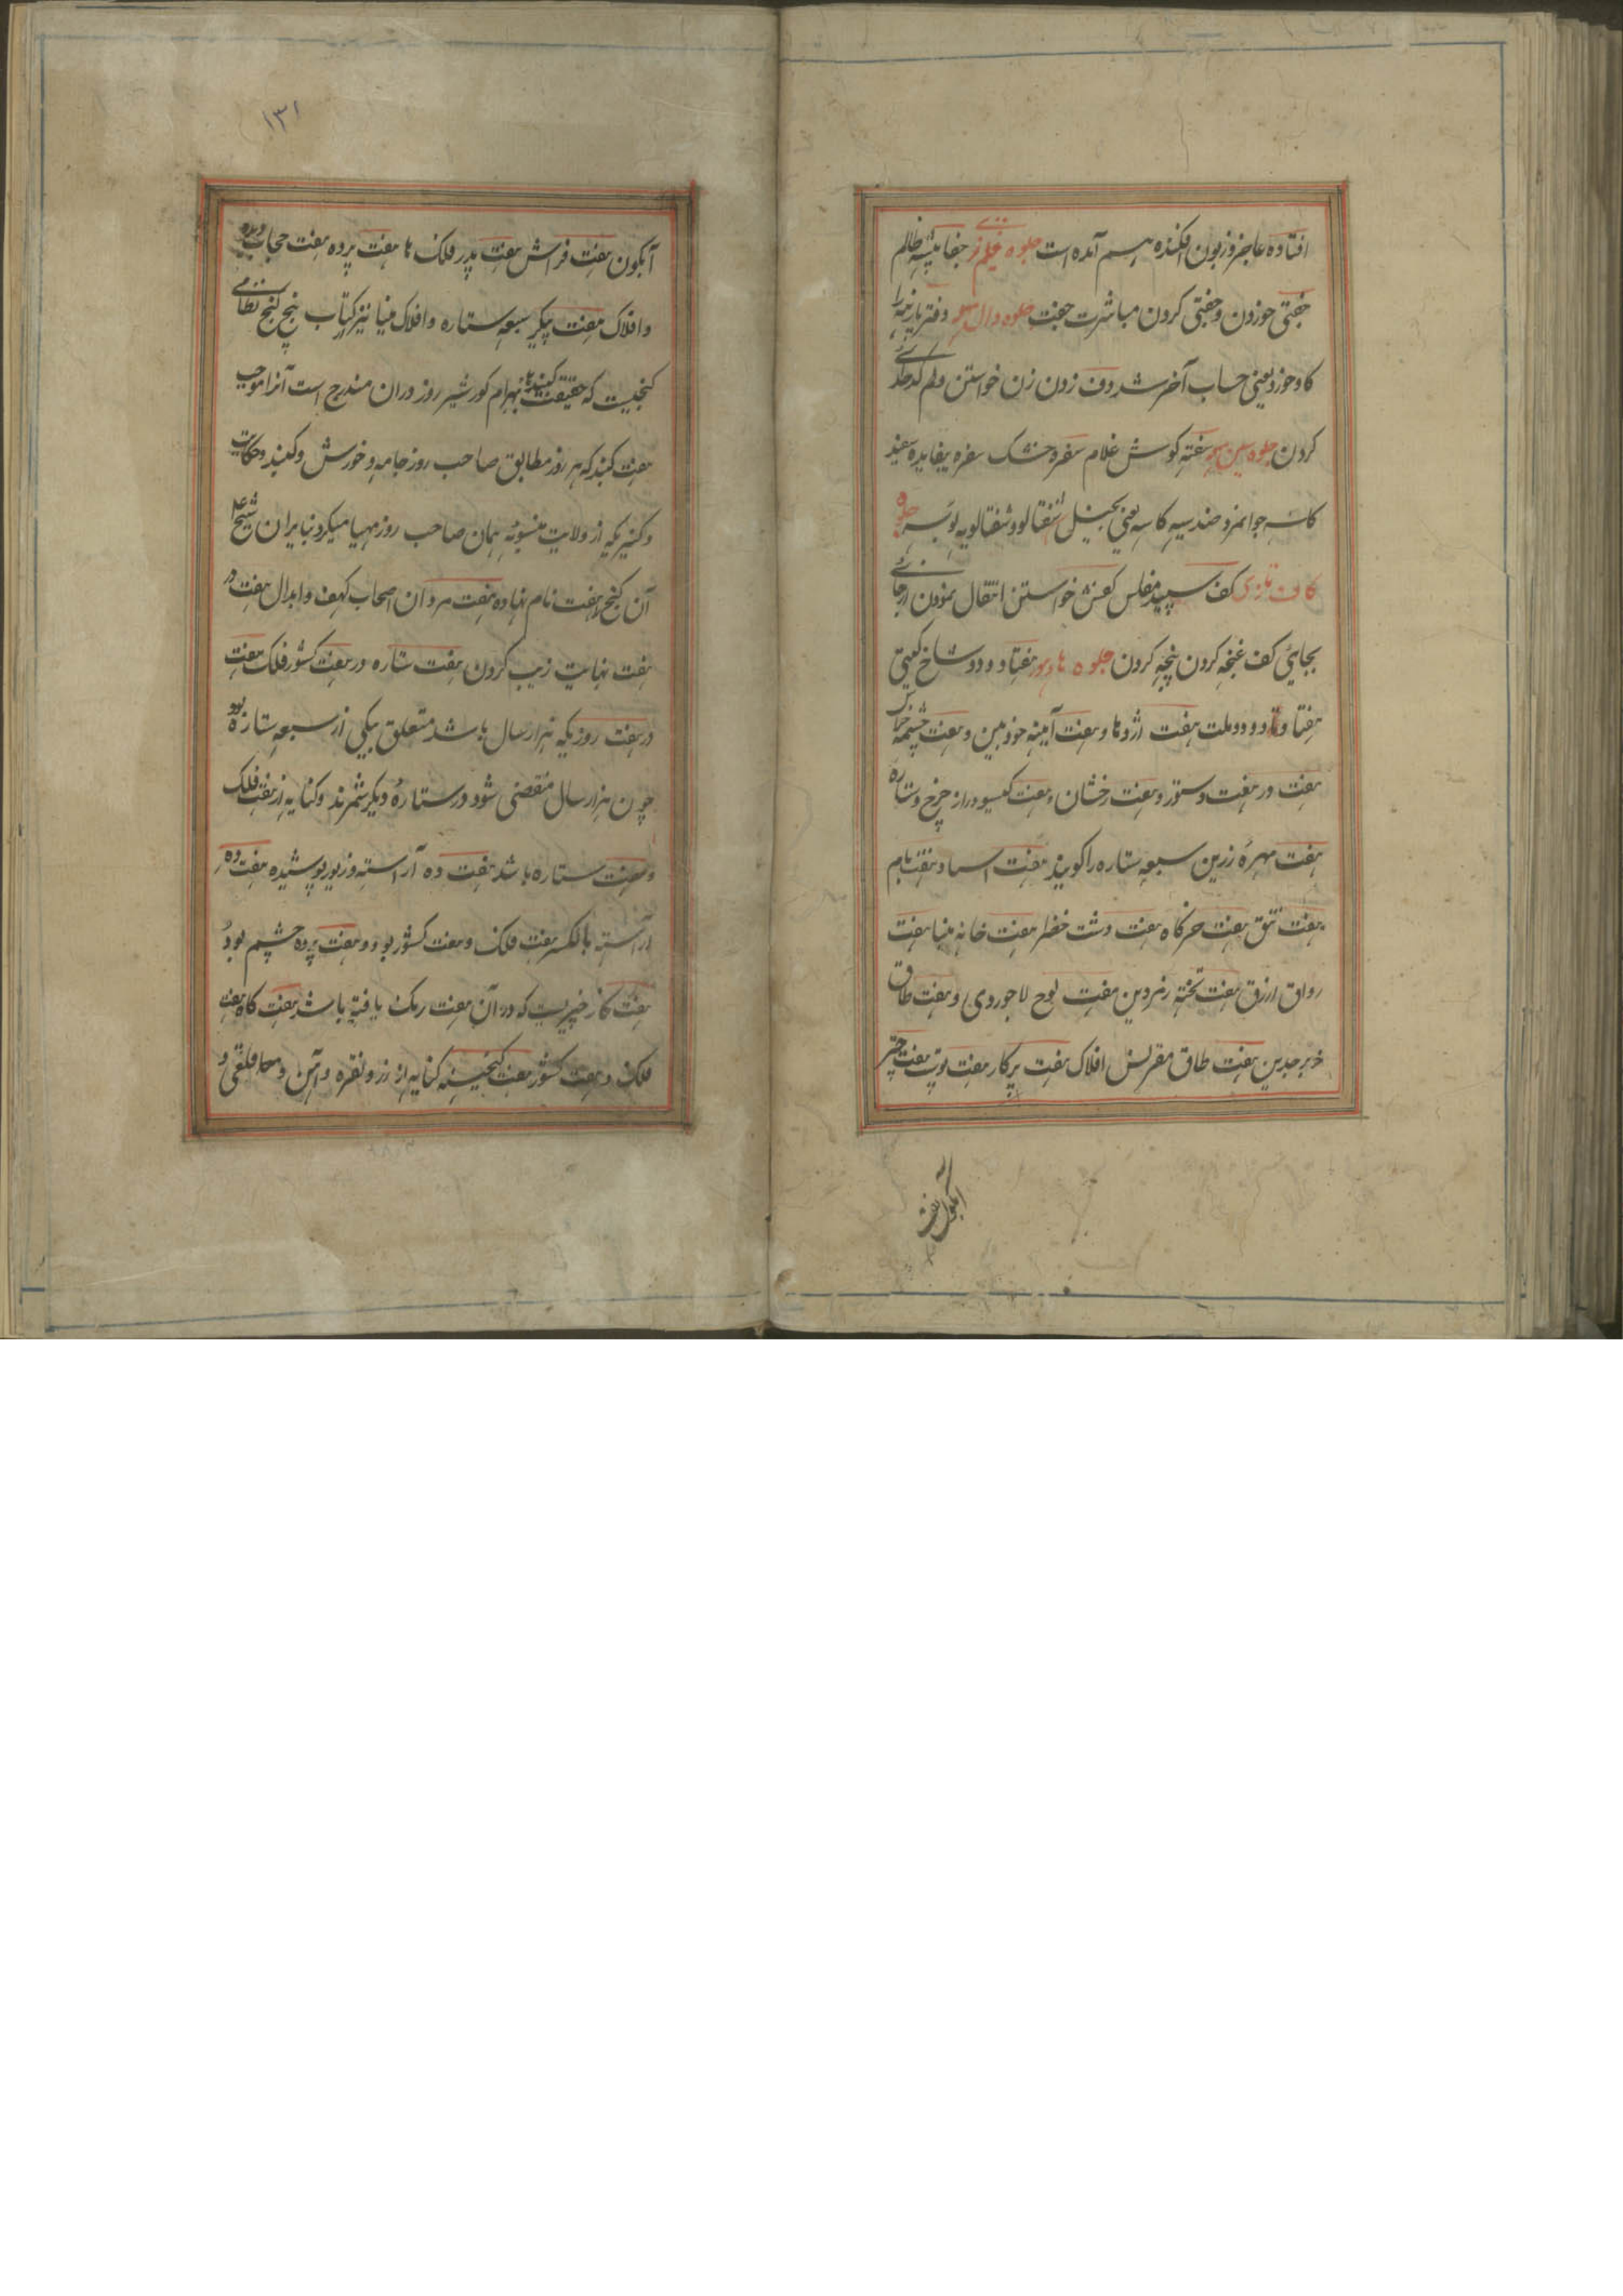 افتاده عاجز و زبون افکنده هم آمده است جلوه جیم تازی جفا پیشه ظالم
جفتی خوردن و جفتی کردن مباشرت جفت جلوه دال مهمله دفتر پارینه را
کاو خورد یعنی حساب آخر شد دف زدن زن خواستن و علم کدخدائی
کردن جلوه سین مهمله سفته کوش غلام سفره خشک سفره بیفایده سفید
کاسه جوانمرد ضد سیه کاسه یعنی بخیل شفتالو و شفتالویه بوسه جلوه
کاف تازی کف سپید مفلس کفش خواستن انتقال نمودن از جائی
بجایی کف غنچه کردن پنجه کردن جلوه هاء هوز هفتاد و دو شاخ یعنی
هفتاد و دو ملت هفت اژدها و هفت آینه خودبین و هفت چشمه خراس
هفت در هفت دستور و هفت رخشان و هفت کیسودار از چرخ و ستاره
هفت مهره زرین سبعه ستاره را کویند هفت اسما و هفت بام
هفت تتق هفت خرکاه هفت دشت خضرا هفت خانه مینا هفت
رواق ازرق هفت تخته زمردین هفت لوح لاجوردی و هفت طاق
زبرجدین هفت طاق مقرنس افلاک هفت پرکار هفت پشت هفت چتر
آبکون هفت
۱۳۱
آبکون هفت فراش هفت پدر فلک ها هفت پرده هفت حجاب دیده
و افلاک هفت پیکر سبعه ستاره و افلاک مینا نیز کتاب پنج کنج نظامی
کنجیست که حقیقت کنبدهای بهرام کور شیر روز دران مندرج است آنرا موجب
هفت کنبد که هر روز مطابق صاحب روز جامه و خورش و کنبد و حکایت
و کنیزیکه از ولایت منسوبه همان صاحب روز مهیا میکرد بنابران شیخ
آن کنج را هفت نام نهاده هفت مردان اصحاب کهف و ابدال هفت در
هفت نهایت زیب کردن هفت ستاره در هفت کشور فلک هفت
در هفت روزیکه هزار سال باشد متعلق بیکی از سبعه ستاره بود
چون هزار سال منقضی شود در ستاره دیکر شمرند و کنایه از هفت فلک
و هفت ستاره باشد هفت ده آراسته و زیور پوشیده هفت ده
آراسته بالکسر هفت فلک و هفت کشور بود و هفت پرده چشم بود
هفت کار چیزیست که در آن هفت رنک یافته باشد هفت کاه هفت
فلک و هفت کشور هفت کنجینه کنایه از زر و نقره و آهن و مس و قلعی و